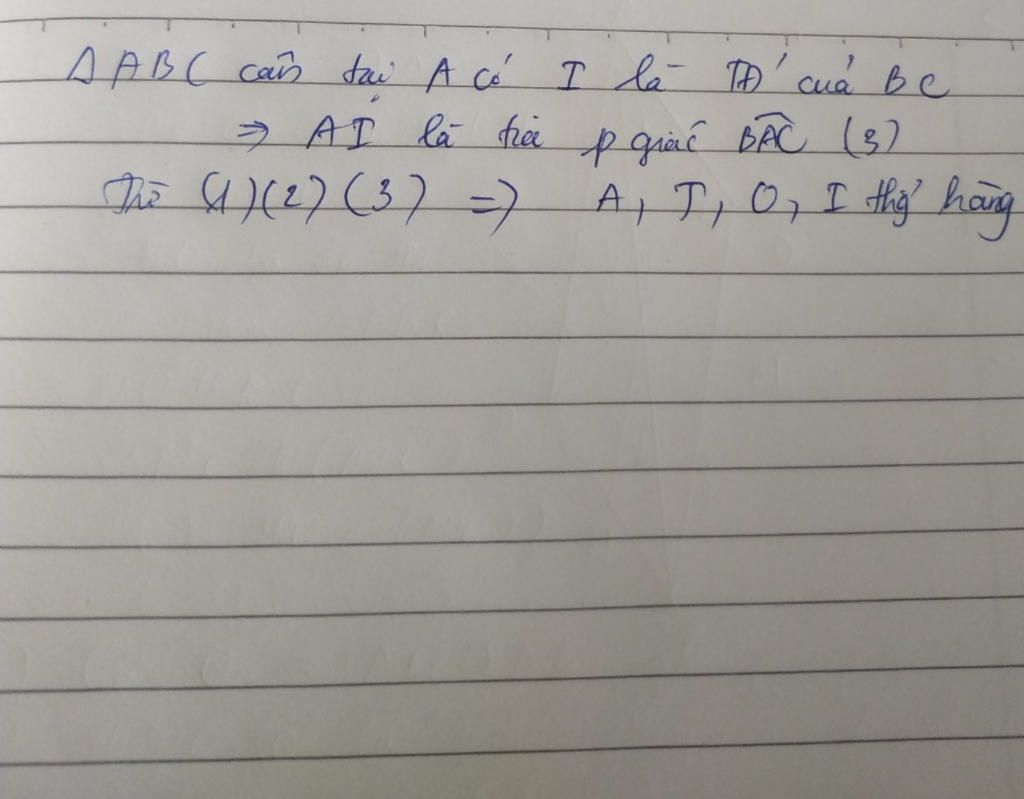 Δ ABC cân tại A có I là TĐ của BC
⇒ AI là tia p giác BAC (3)
Từ (1)(2)(3) ⇒ A, T, O, I thẳng hàng